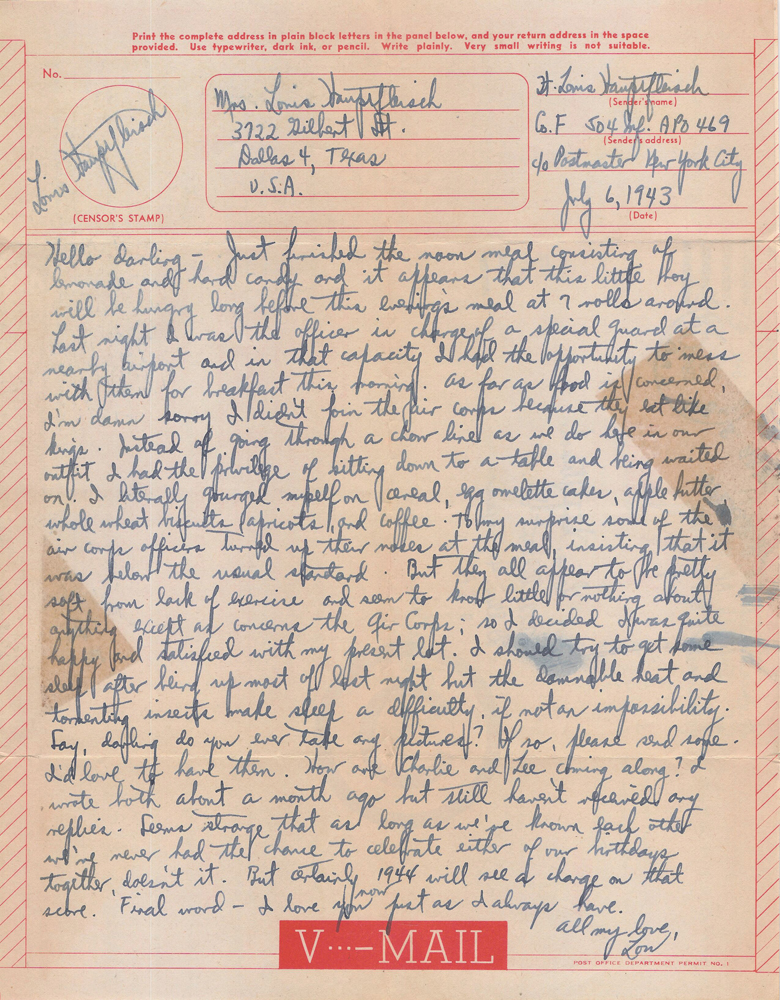 Print the complete address in plain block letters in the panel below, and your return address in the space
provided. Use typewriter, dark ink, or pencil. Write plainly. Very small writing is not suitable.
No.
Louis Hauptfleisch
(CENSOR'S STAMP)
Mrs. Louis Hauptfleisch
3722 Gilbert St.
Dallas 4, Texas
U.S.A.
Lt. Louis Hauptfleisch
(Sender's name)
Co. F 504 Inf. APO 469
(Sender's address)
c/o Postmaster New York City
July 6, 1943
(Date)
Hello darling – Just finished the noon meal consisting of
lemonade and hard candy and it appears that this little boy
will be hungry long before this evenings meal at 7 rolls around.
Last night I was the officer in charge of a special guard at a
nearby airport and in that capacity I had the opportunity to mess
with them for breakfast this morning. As far as food is concerned,
I'm damn sorry I didn't join the air corps because they eat like
kings. Instead of going through a chow line as we do here in our
outfit I had the privilege of sitting down to a table and being waited
on. I literally gourged myself on cereal, egg omelette cakes, apple butter,
whole wheat biscuits, apricots, and coffee. To my surprise some of the
air corps officers turned up their noses at the meal, insisting that it
was below the usual standard. But they all appear to be pretty
soft from lack of exercise and seem to know little or nothing about
anything except as concerns the Air Corps; so I decided I was quite
happy and satisfied with my present lot. I should try to get some
sleep after being up most of last night but the damnable heat and
tormenting insects make sleep a difficulty, if not an impossibility.
Say, darling do you ever take any pictures? If so, please send some.
I'd love to have them. How are Charlie and Lee coming along? I
wrote both about a month ago but still haven't received any
replies. Seems strange that as long as we've known each other
we've never had the chance to celebrate either of our birthdays
together, doesn't it. But certainly 1944 will see a change on that
score. Final word – I love you now just as I always have.
All my love,
Lou
V···–MAIL
POST OFFICE DEPARTMENT PERMIT NO. 1